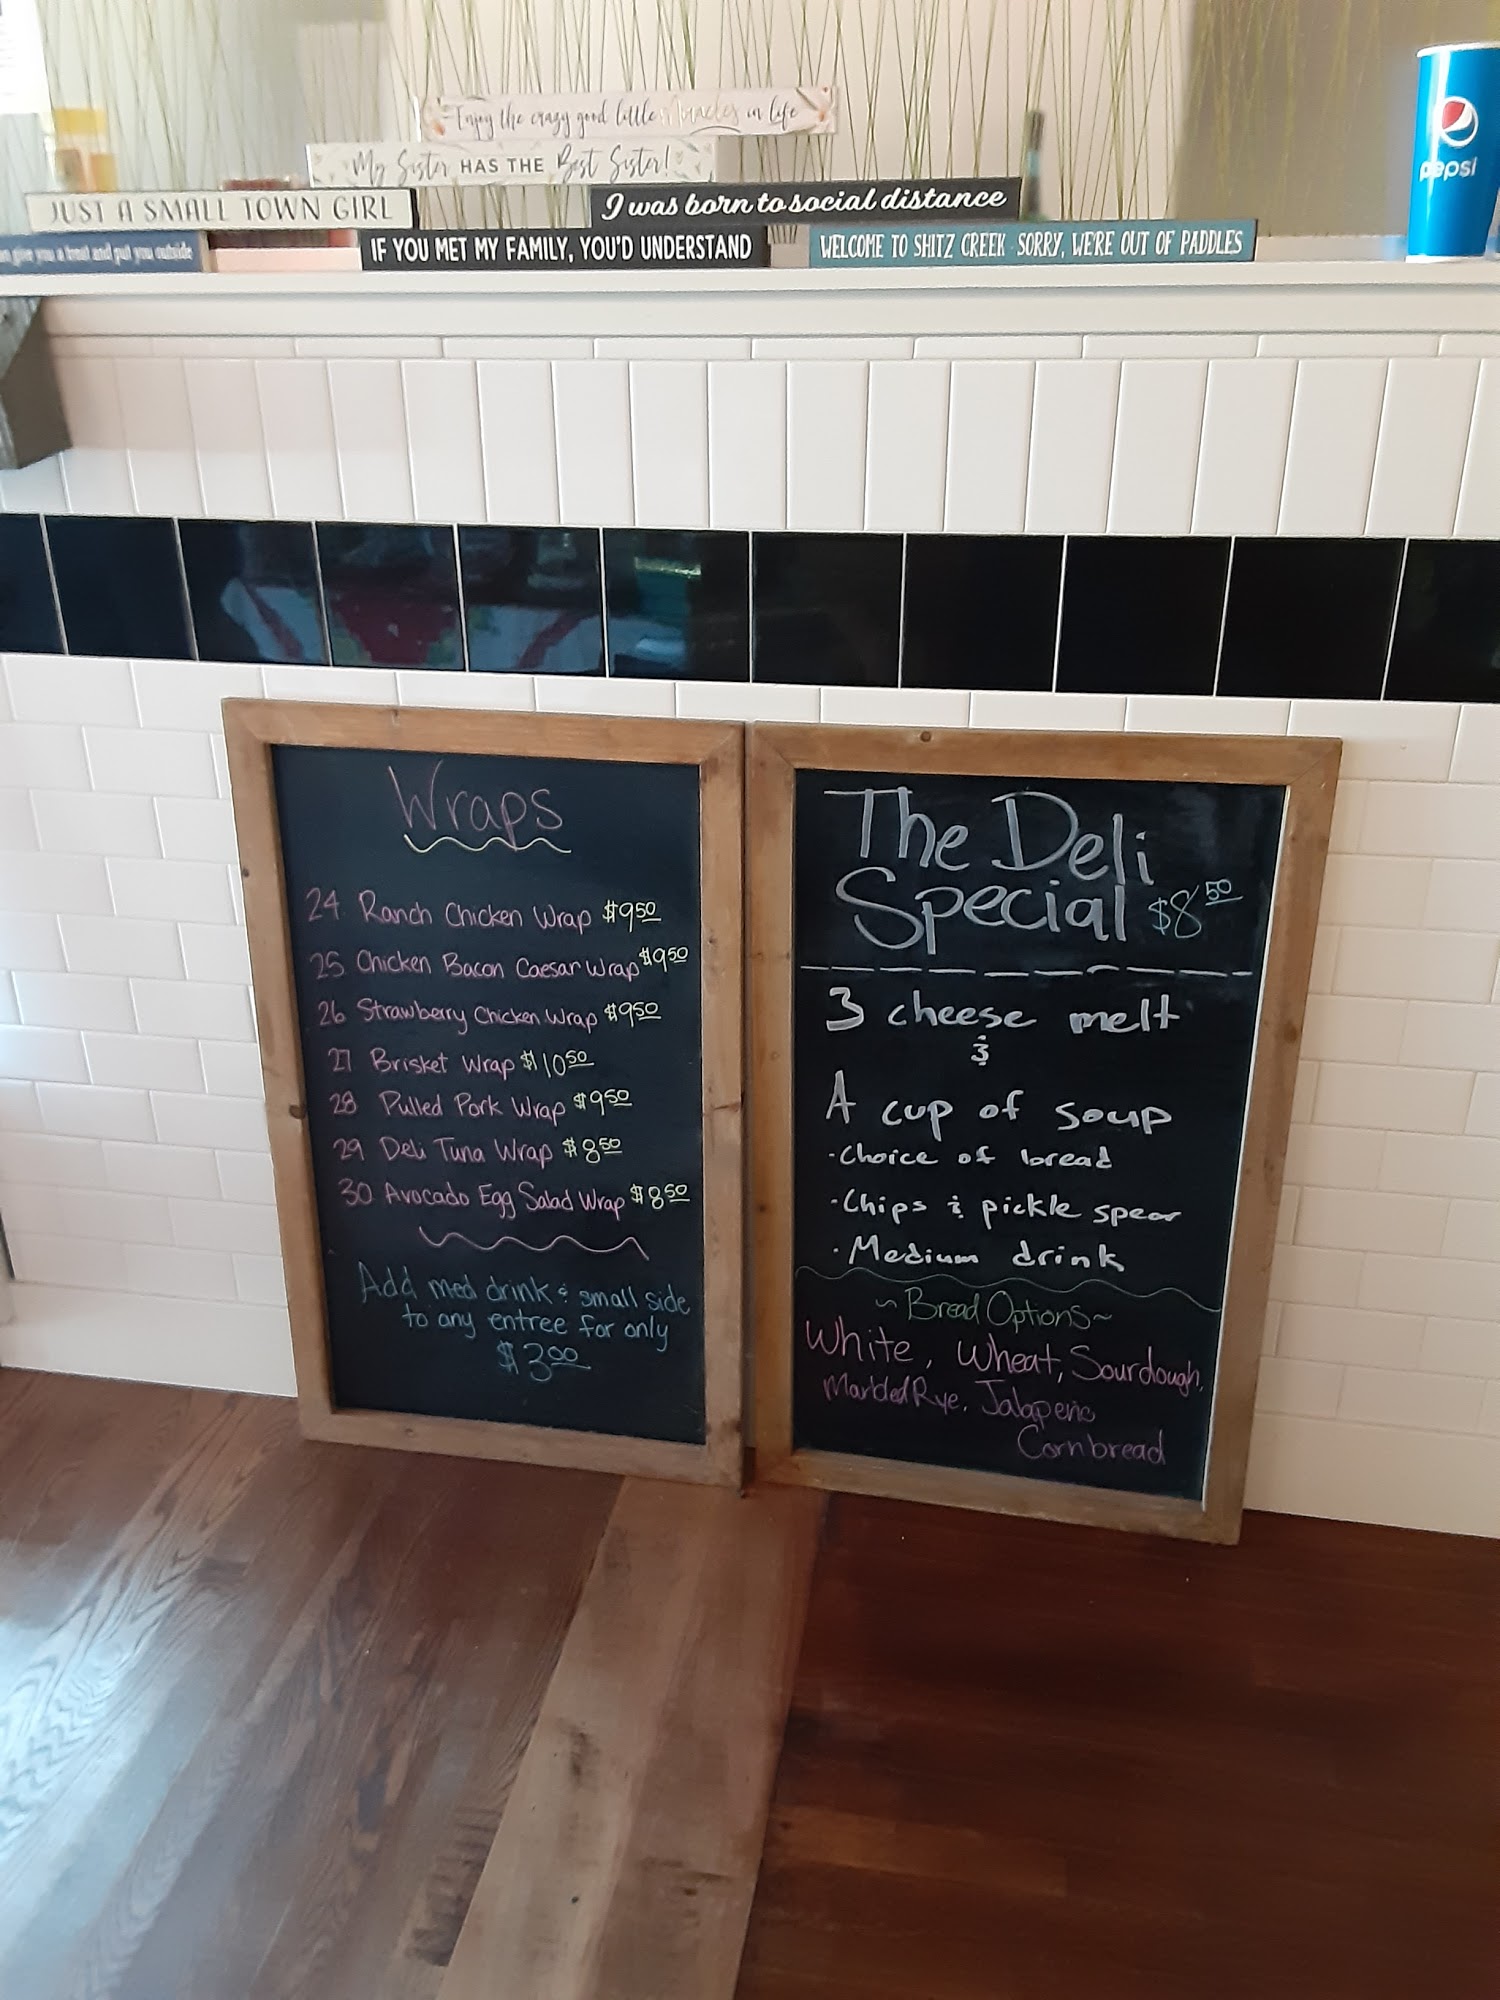 Enjoy the crazy good little Miracles in life
My Sister HAS THE Best Sister!
JUST A SMALL TOWN GIRL
I was born to social distance
give you a treat and put you outside
IF YOU MET MY FAMILY, YOU'D UNDERSTAND
WELCOME TO SHITZ CREEK · SORRY, WE'RE OUT OF PADDLES
pepsi
Wraps
24 Ranch Chicken Wrap $9.50
25 Chicken Bacon Caesar Wrap $9.50
26 Strawberry Chicken Wrap $9.50
27 Brisket Wrap $10.50
28 Pulled Pork Wrap $9.50
29 Deli Tuna Wrap $8.50
30 Avocado Egg Salad Wrap $8.50
Add med drink & small side
to any entree for only
$3.00
The Deli
Special $8.50
3 cheese melt
&
A cup of soup
·Choice of bread
·Chips & pickle spear
·Medium drink
~Bread Options~
White, Wheat, Sourdough,
Marbled Rye, Jalapeno
Cornbread